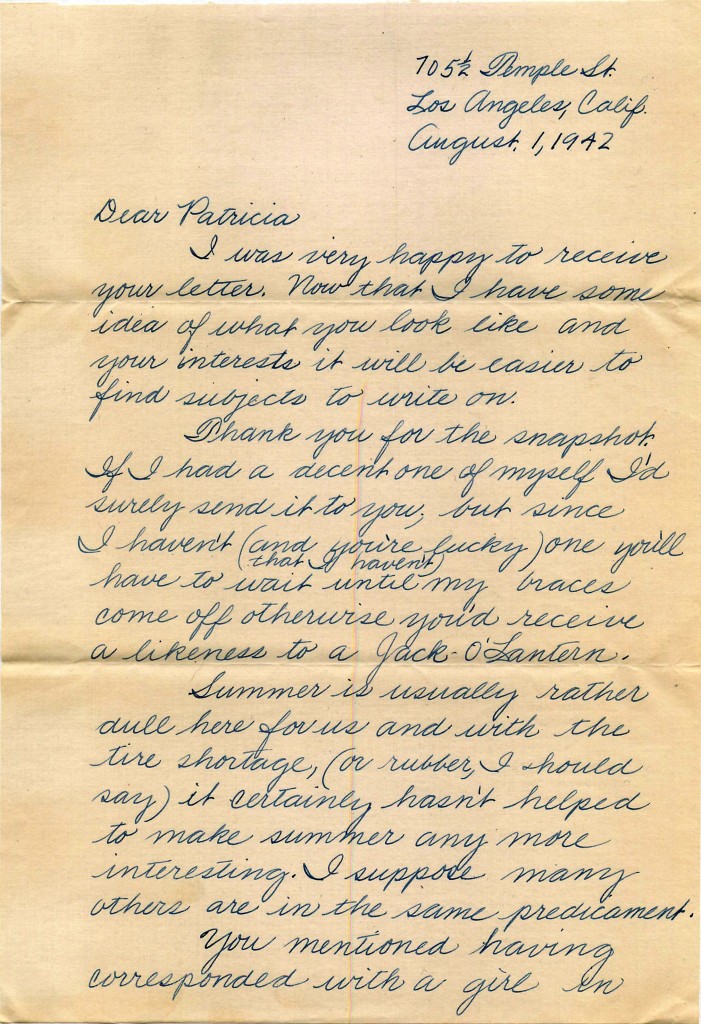 705½ Temple St.
Los Angeles, Calif.
August, 1, 1942
Dear Patricia
I was very happy to receive
your letter. Now that I have some
idea of what you look like and
your interests it will be easier to
find subjects to write on.
Thank you for the snapshot.
If I had a decent one of myself I'd
surely send it to you, but since
I haven't (and you're lucky) one you'll
that I haven't)
have to wait until my braces
come off otherwise you'd receive
a likeness to a Jack-O'Lantern.
Summer is usually rather
dull here for us and with the
tire shortage, (or rubber, I should
say) it certainly hasn't helped
to make summer any more
interesting. I suppose many
others are in the same predicament.
You mentioned having
corresponded with a girl in